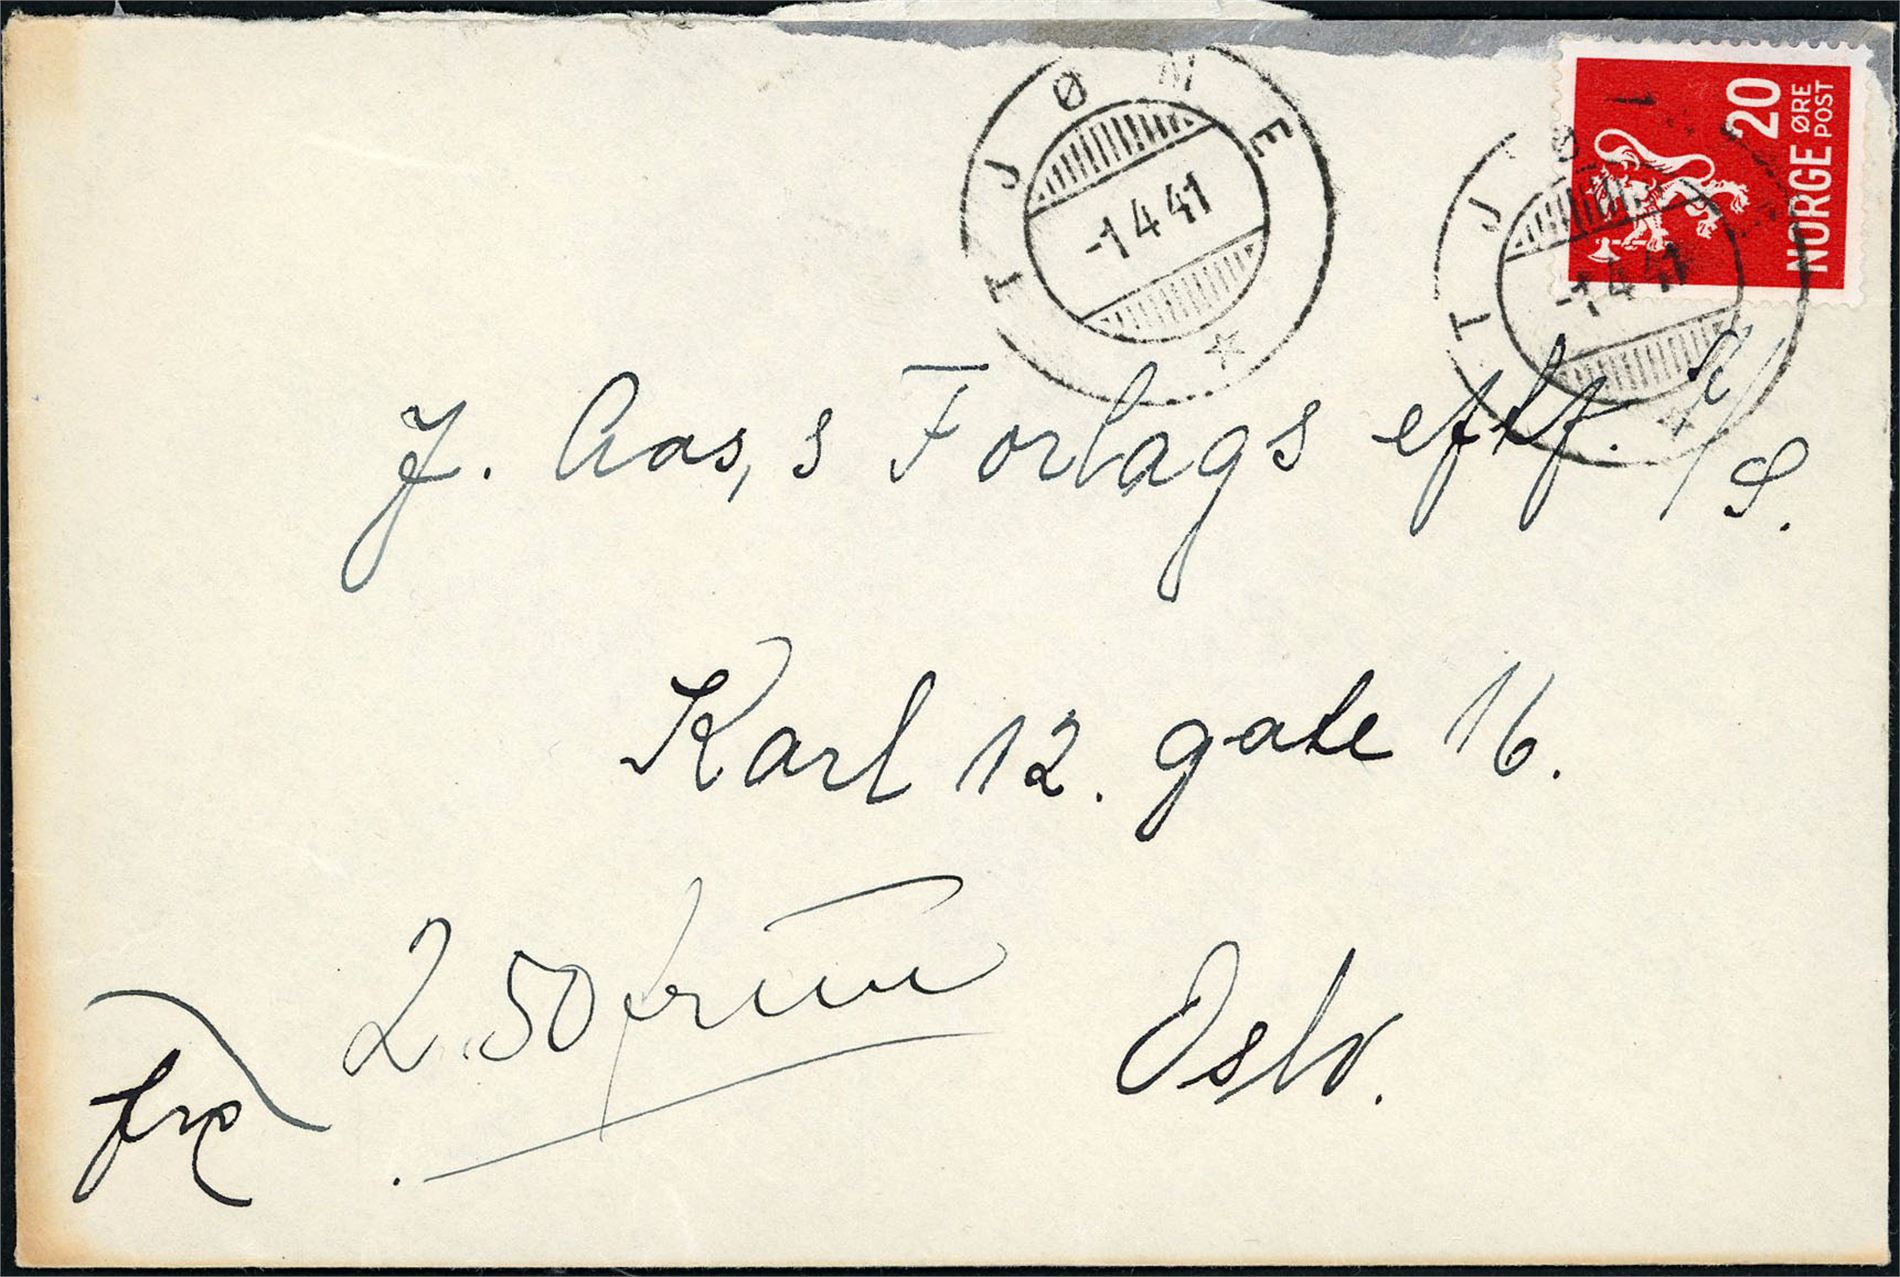 TJØME
-1 4 41
TJØME
-1 4 41
20
ØRE
NORGE POST
J. Aas,s Forlags eftf. A/S.
Karl 12. gate 16.
2.50 frim
Oslo.